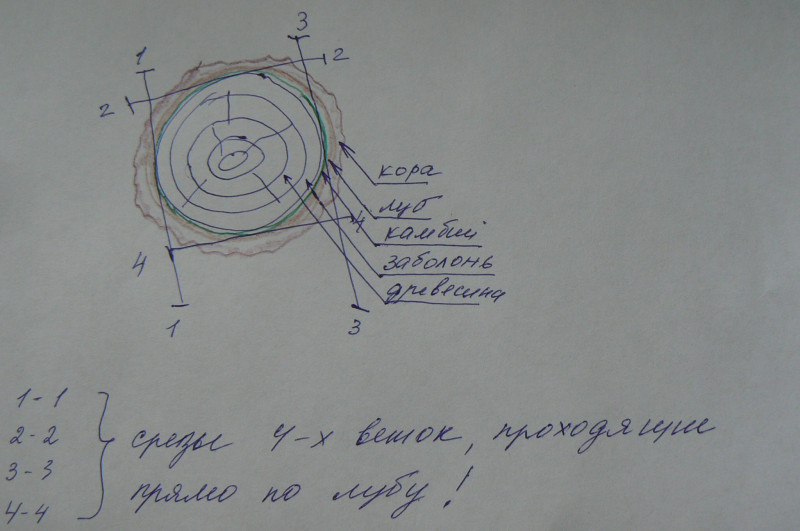 3
1
2
2
кора
луб
камбий
4
заболонь
4
древесина
1
3
1-1
2-2
3-3
4-4
срезы 4-х веток, проходящие
прямо по лубу!